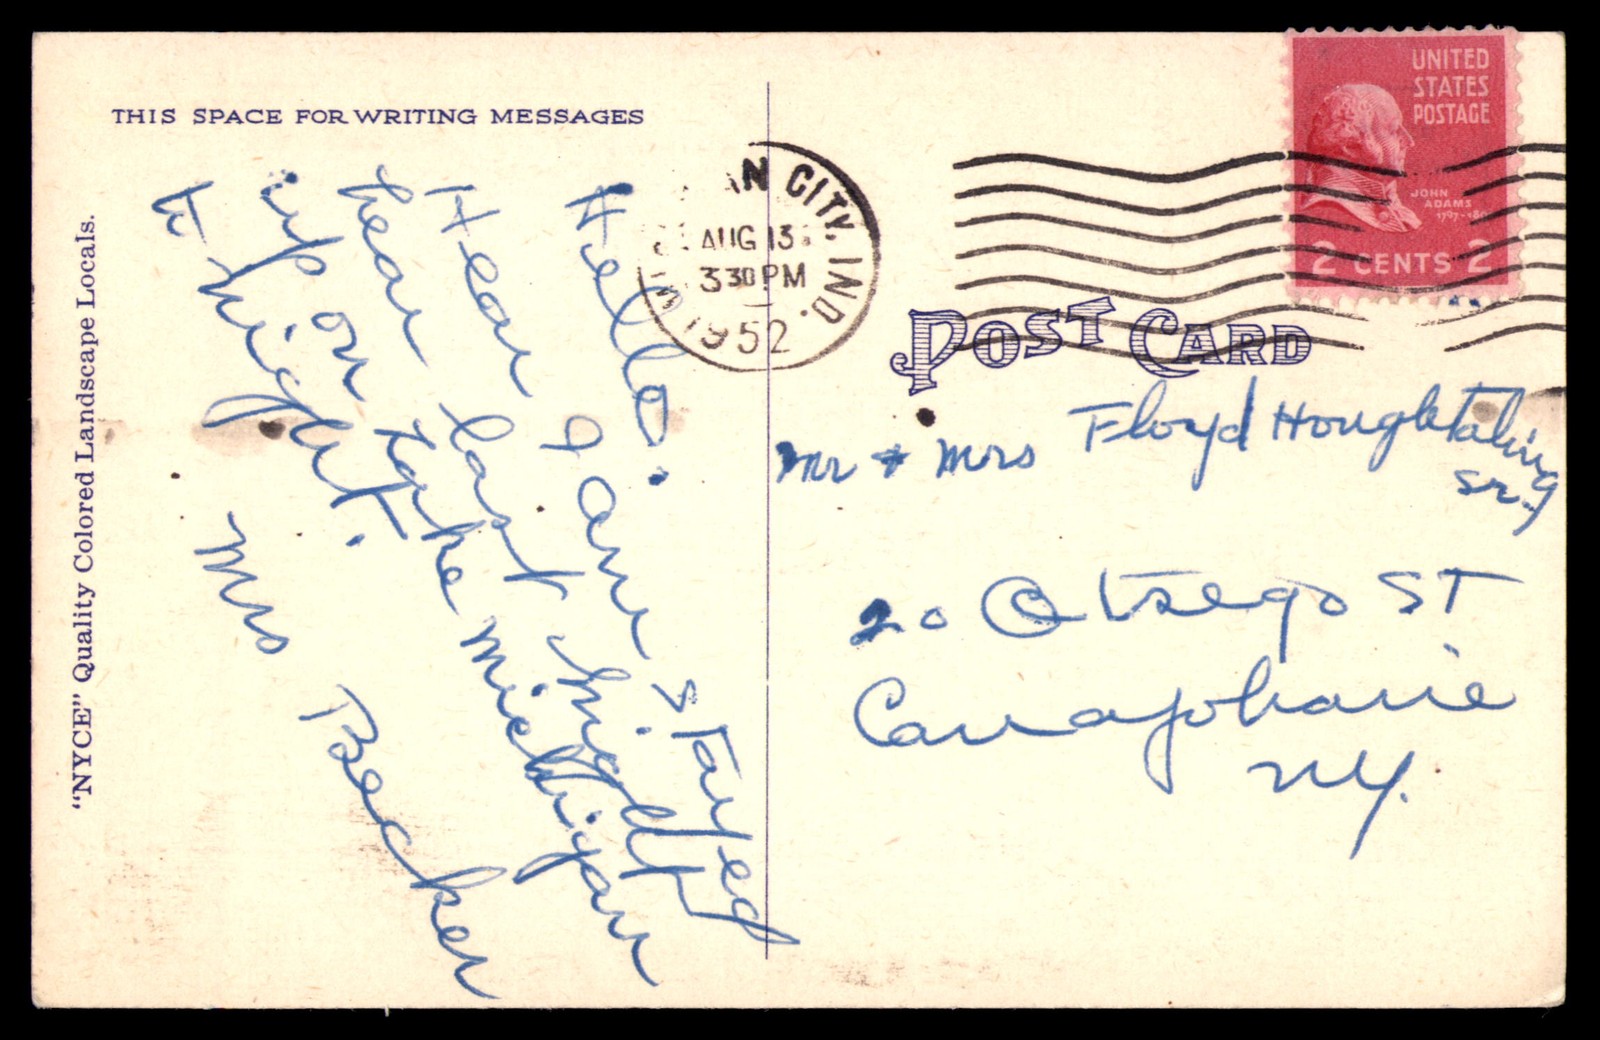 THIS SPACE FOR WRITING MESSAGES
"NYCE" Quality Colored Landscape Locals.
Hello.
Hear I am stayed
hear last night
up on Lake Michigan
to night.
Mrs Becker
AN CITY, IND.
AUG 13
3 30 PM
1952
UNITED
STATES
POSTAGE
JOHN
ADAMS
2 CENTS 2
POST CARD
Mr + Mrs Floyd Houghtaling
Sr.
20 Otsego ST
Canajoharie
NY.